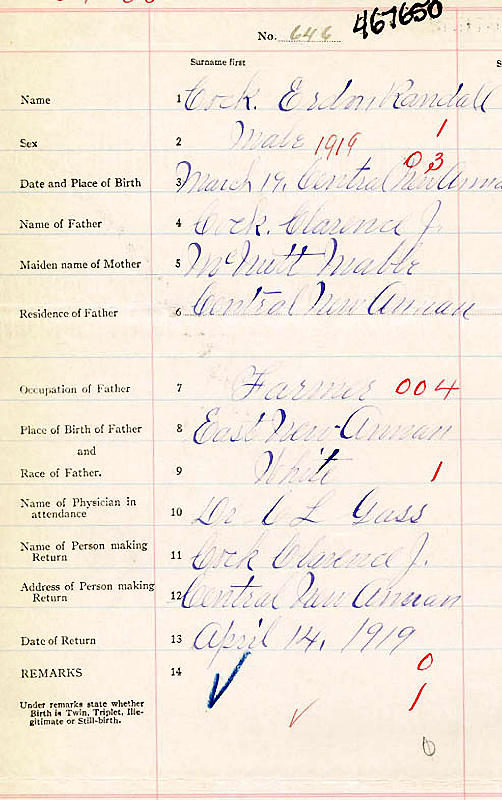 467650
No. 646
Surname first
Name 1 Cock. Erdon Randall
1
Sex 2 Male 1919
03
Date and Place of Birth 3 March 19, Central New Anna
Name of Father 4 Cock. Clarence J.
Maiden name of Mother 5 McNutt Mable
Residence of Father 6 Central New Annan
Occupation of Father 7 Farmer 004
Place of Birth of Father 8 East New Annan
and
Race of Father. 9 White 1
Name of Physician in
attendance 10 Dr C L Gass
Name of Person making
Return 11 Cock Clarence J.
Address of Person making
Return 12 Central New Annan
Date of Return 13 April 14, 1919
0
REMARKS 14
Under remarks state whether
Birth is Twin, Triplet, Ille-
gitimate or Still-birth.
1
0